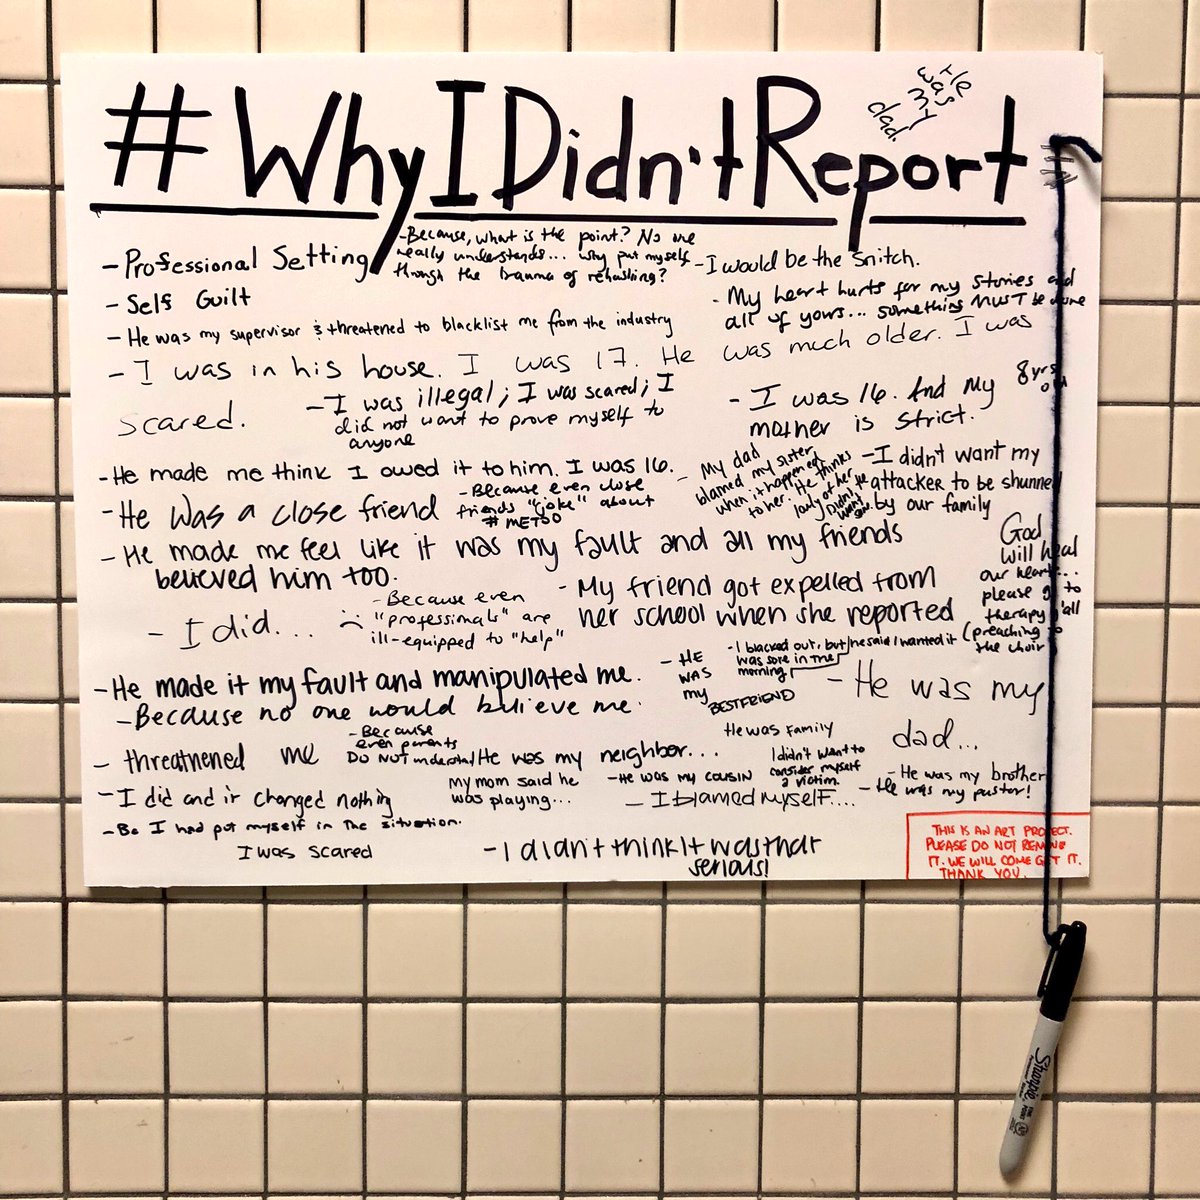 #WhyIDidn'tReport
He
was
my
dad.
- Professional Setting
- Because, what is the point? No one
really understands... why put myself
through the trauma of rehashing?
- I would be the snitch.
- Self Guilt
- My heart hurts for my stories and
all of yours... something MUST be done
- He was my supervisor & threatened to blacklist me from the industry
- I was in his house. I was 17. He was much older. I was
scared.
8 yrs
old
- I was illegal; I was scared; I
did not want to prove myself to
anyone
- I was 16. And my
mother is strict.
- He made me think I owed it to him. I was 16.
- My dad
blamed my sister
when it happened
to her. He thinks
lowly of her
Didn't
want
- I didn't want my
attacker to be shunned
by our family
- He was a close friend
- Because even close
friends "joke" about
#METOO
- He made me feel like it was my fault and all my friends
believed him too.
God
will heal
our hearts...
please go to
therapy y'all
(preaching to
the choir
- My friend got expelled from
her school when she reported
- I did....
- Because even
"professionals" are
ill-equipped to "help"
- He made it my fault and manipulated me.
- HE
WAS
my
BESTFRIEND
- I blacked out, but he said I wanted it
was sore in the
morning
- He was my
dad...
- Because no one would believe me.
- threatnened me
- Because
even parents
DO NOT understand
He was my neighbor...
He was Family
- I did and it changed nothing
my mom said he
was playing...
- He was my cousin
I didn't want to
consider myself
a victim.
- He was my brother
- He was my pastor!
- I blamed myself....
- Bc I had put myself in the situation.
I was scared
- I didn't think it was that
serious!
THIS IS AN ART PROJECT.
PLEASE DO NOT REMOVE
IT. WE WILL COME GET IT.
THANK YOU.
Sharpie